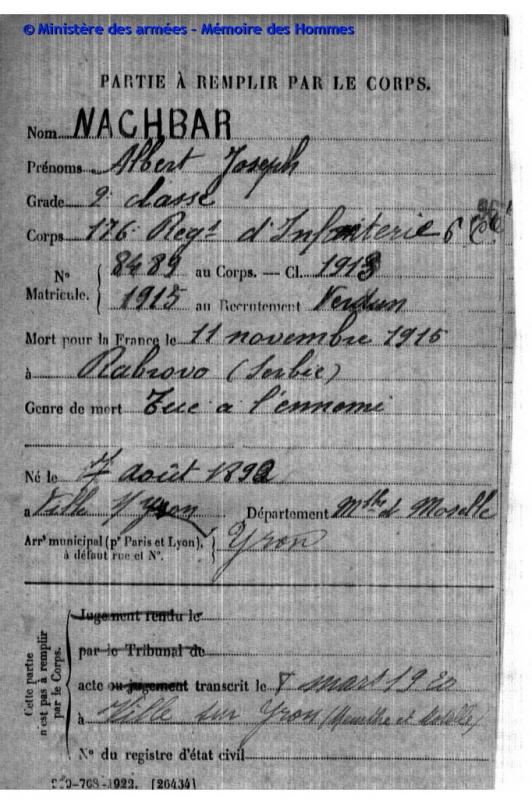 © Ministère des armées - Mémoire des Hommes
PARTIE À REMPLIR PAR LE CORPS.
Nom NACHBAR
Prénoms Albert Joseph
Grade 2e classe
Corps 176 Regt d'Infanterie 6 Cie
N° Matricule. 8489 au Corps. — Cl. 1913
1915 au Recrutement Verdun
Mort pour la France le 11 novembre 1915
à Rabrovo (Serbie)
Genre de mort Tué à l'ennemi
Né le 7 août 1892
à Ville s/ Yron Département Mthe et Moselle
Arrt municipal (pr Paris et Lyon), à défaut rue et N°. Yron
Cette partie n'est pas à remplir par le Corps.
Jugement rendu le
par le Tribunal de
acte ou jugement transcrit le 8 mars 1920
à Ville sur Yron (Meurthe et Moselle)
N° du registre d'état civil
-708-1922. [26434]